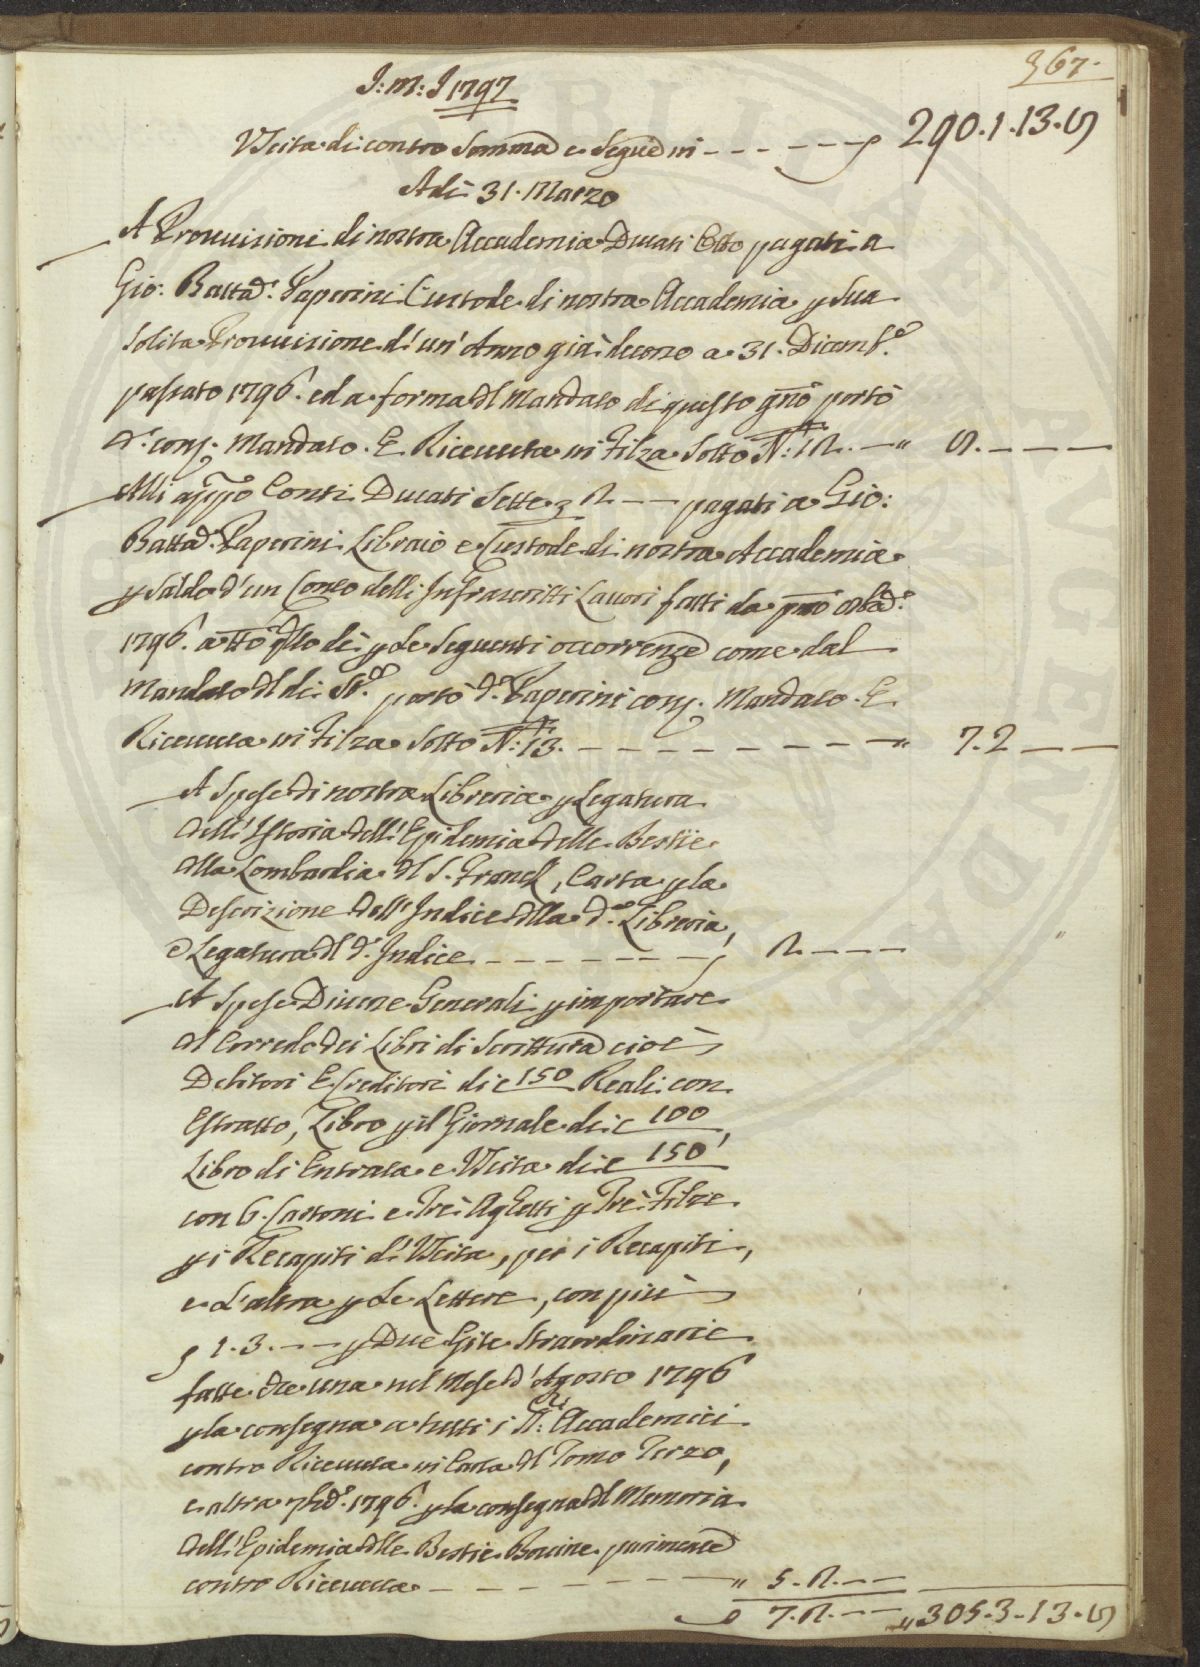 367.
J: M: J 1797
Uscita di contro Somma e Segue in - - - - - 290.1.13.8
Adì 31. Marzo
A Provvisioni di nostra Accademia Ducati Otto pagati a
Gio: Batta Paperini Custode di nostra Accademia p Sua
solita Provvisione d'un'Anno già decorso a 31. Dicemb.e
passato 1796. ed a forma dl Mandato di questo gno portò
d.o cons. Mandato. E Ricevuta in Filza Sotto N.o 12. — " 8. — — —
Alli appo Conti Ducati Sette 2 — — pagati a Gio:
Batta Paperini Libraio e Custode di nostra Accademia
p Saldo d'un Conto delli Infrascritti Lavori fatti da pmo
1796. a tto qsto dì p le Seguenti occorrenze come dal
Mandato dl dì portò d.o Paperini cons. Mandato. E
Ricevuta in Filza Sotto N.o 13. - - - - - - - - - " 7.2 — —
A Spese di nostra Libreria p Legatura
dell'Istoria dell'Epidemia delle Bestie
alla Lombardia dl S. Franck, Carta p la
Descrizione dell'Indice dlla d.a Libreria,
e Legatura dl d.o Indice - - - - - - - 2. — — —
A Spese Diverse Generali p importare
al Corredo dei Libri di Scrittura cioè
Debitori E Creditori di c 150 Reali con
Estratto, Libro p il Giornale di c 100,
Libro di Entrata e Uscita di c 150
con 6. Cartoni e Trè Aghetti p Trè Filze
p i Recapiti d'Uscita, per i Recapiti,
e l'altra p le Lettere, con più
1.3. — — p Due Gite Straordinarie
fatte una nel Mese d'Agosto 1796
p la consegna a tutti i SS.ri Accademici
contro Ricevuta in Carta dl Tomo Terzo,
e altra 7bre 1796. p la consegna dl Memoria
dell'Epidemia dlle Bestie Bovine parimente
contro Ricevuta - - - - - - - - " 5.2. — —
7.2. — — " 305.3.13.8